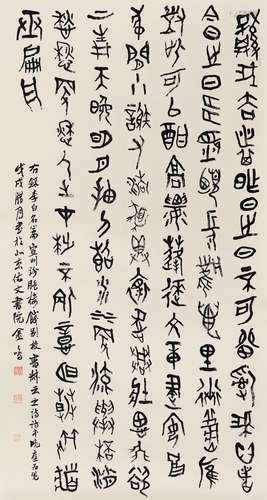 棄我去者昨日之日不可留亂我心者
今日之日多煩憂長風萬里送秋雁
對此可以酣高樓蓬萊文章建安骨
中間小謝又清發俱懷逸興壯思飛欲
上青天覽明月抽刀斷水水更流舉杯
銷愁愁更愁人生在世不稱意明朝散髮
弄扁舟
右錄李白名篇宣州謝朓樓餞別校書叔雲
戊戌臘月書於北京佑文書院金